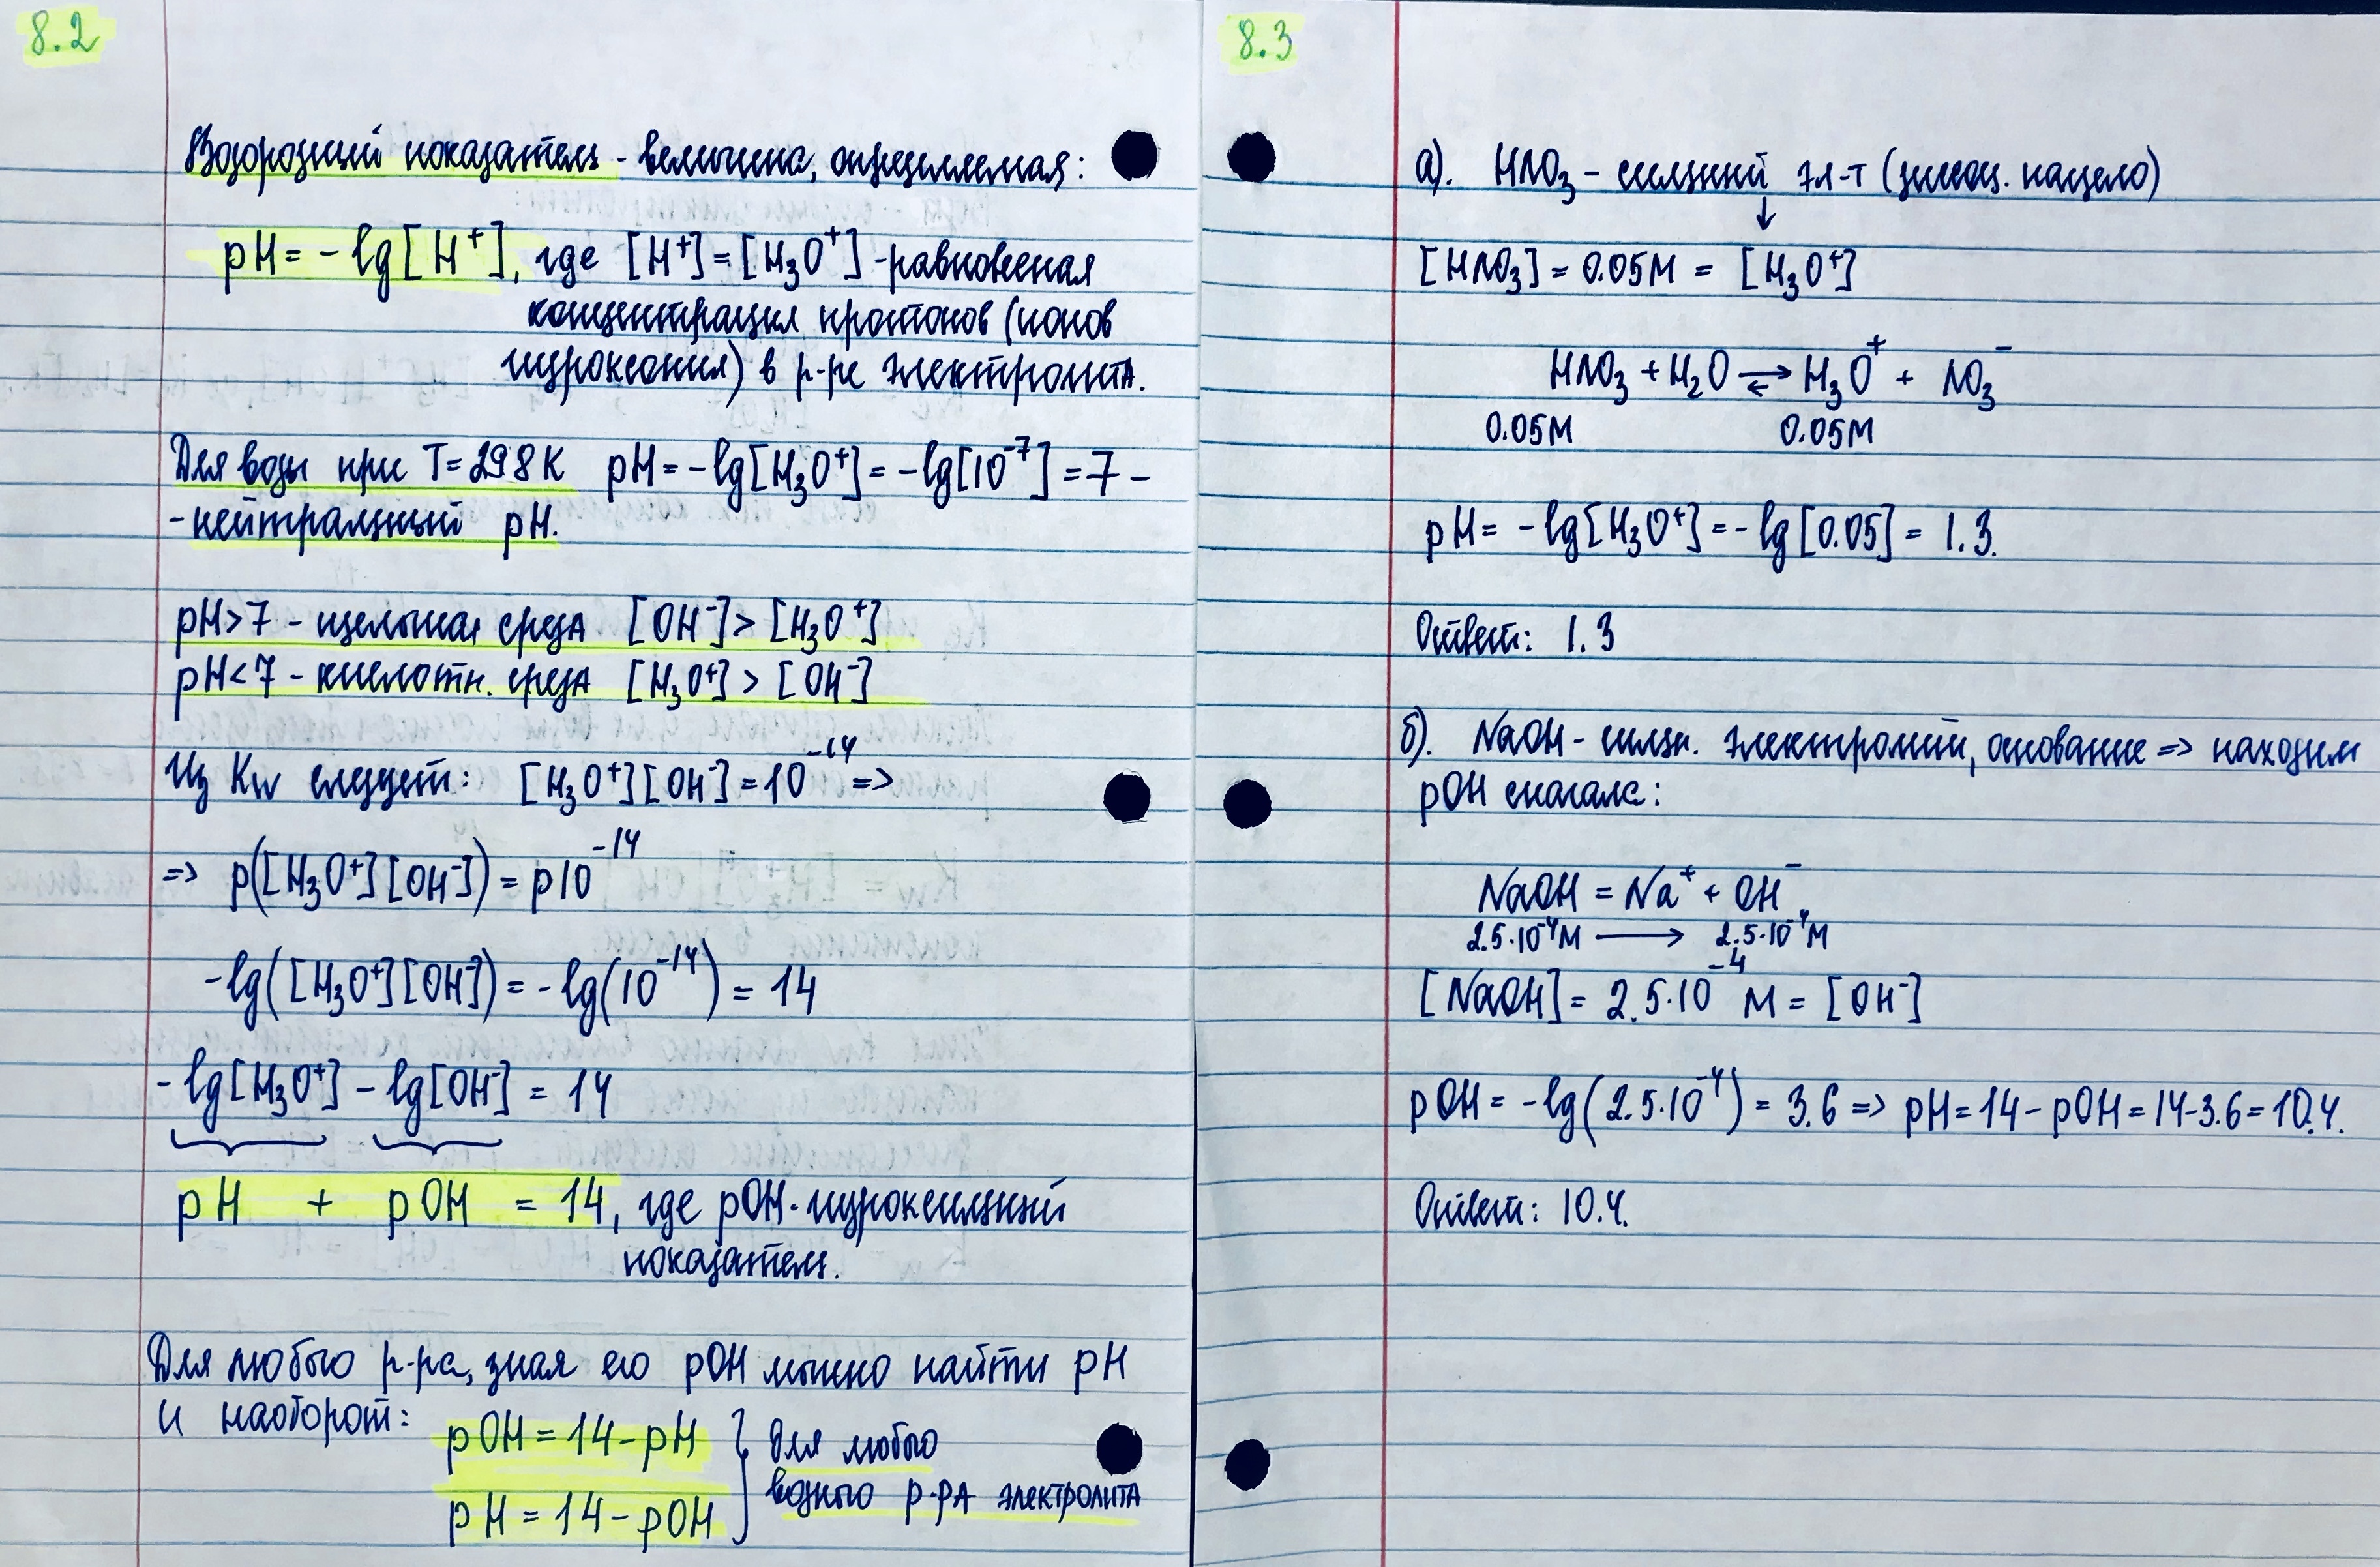 8.2
Водородный показатель - величина, определяемая:
pH = - lg [H⁺], где [H⁺] = [H₃O⁺] - равновесная
концентрация протонов (ионов
гидроксония) в р-ре электролита.
Для воды при T = 298 K pH = -lg[H₃O⁺] = -lg[10⁻⁷] = 7 -
- нейтральный pH.
pH > 7 - щелочная среда [OH⁻] > [H₃O⁺]
pH < 7 - кислотн. среда [H₃O⁺] > [OH⁻]
Из Kw следует: [H₃O⁺][OH⁻] = 10⁻¹⁴ =>
=> p([H₃O⁺][OH⁻]) = p10⁻¹⁴
-lg([H₃O⁺][OH⁻]) = -lg(10⁻¹⁴) = 14
-lg[H₃O⁺] - lg[OH⁻] = 14
pH + pOH = 14, где pOH - гидроксильный
показатель.
Для любого р-ра, зная его pOH можно найти pH
и наоборот:
pOH = 14 - pH } для любого
pH = 14 - pOH } водного р-ра электролита
8.3
а). HNO₃ - сильный эл-т (диссоц. нацело)
↓
[HNO₃] = 0.05M = [H₃O⁺]
HNO₃ + H₂O ⇄ H₃O⁺ + NO₃⁻
0.05M 0.05M
pH = -lg[H₃O⁺] = -lg[0.05] = 1.3.
Ответ: 1.3
б). NaOH - сильн. электролит, основание => находим
pOH сначала:
NaOH = Na⁺ + OH⁻
2.5·10⁻⁴M ⟶ 2.5·10⁻⁴M
[NaOH] = 2.5·10⁻⁴ M = [OH⁻]
pOH = -lg(2.5·10⁻⁴) = 3.6 => pH = 14 - pOH = 14-3.6 = 10.4.
Ответ: 10.4.